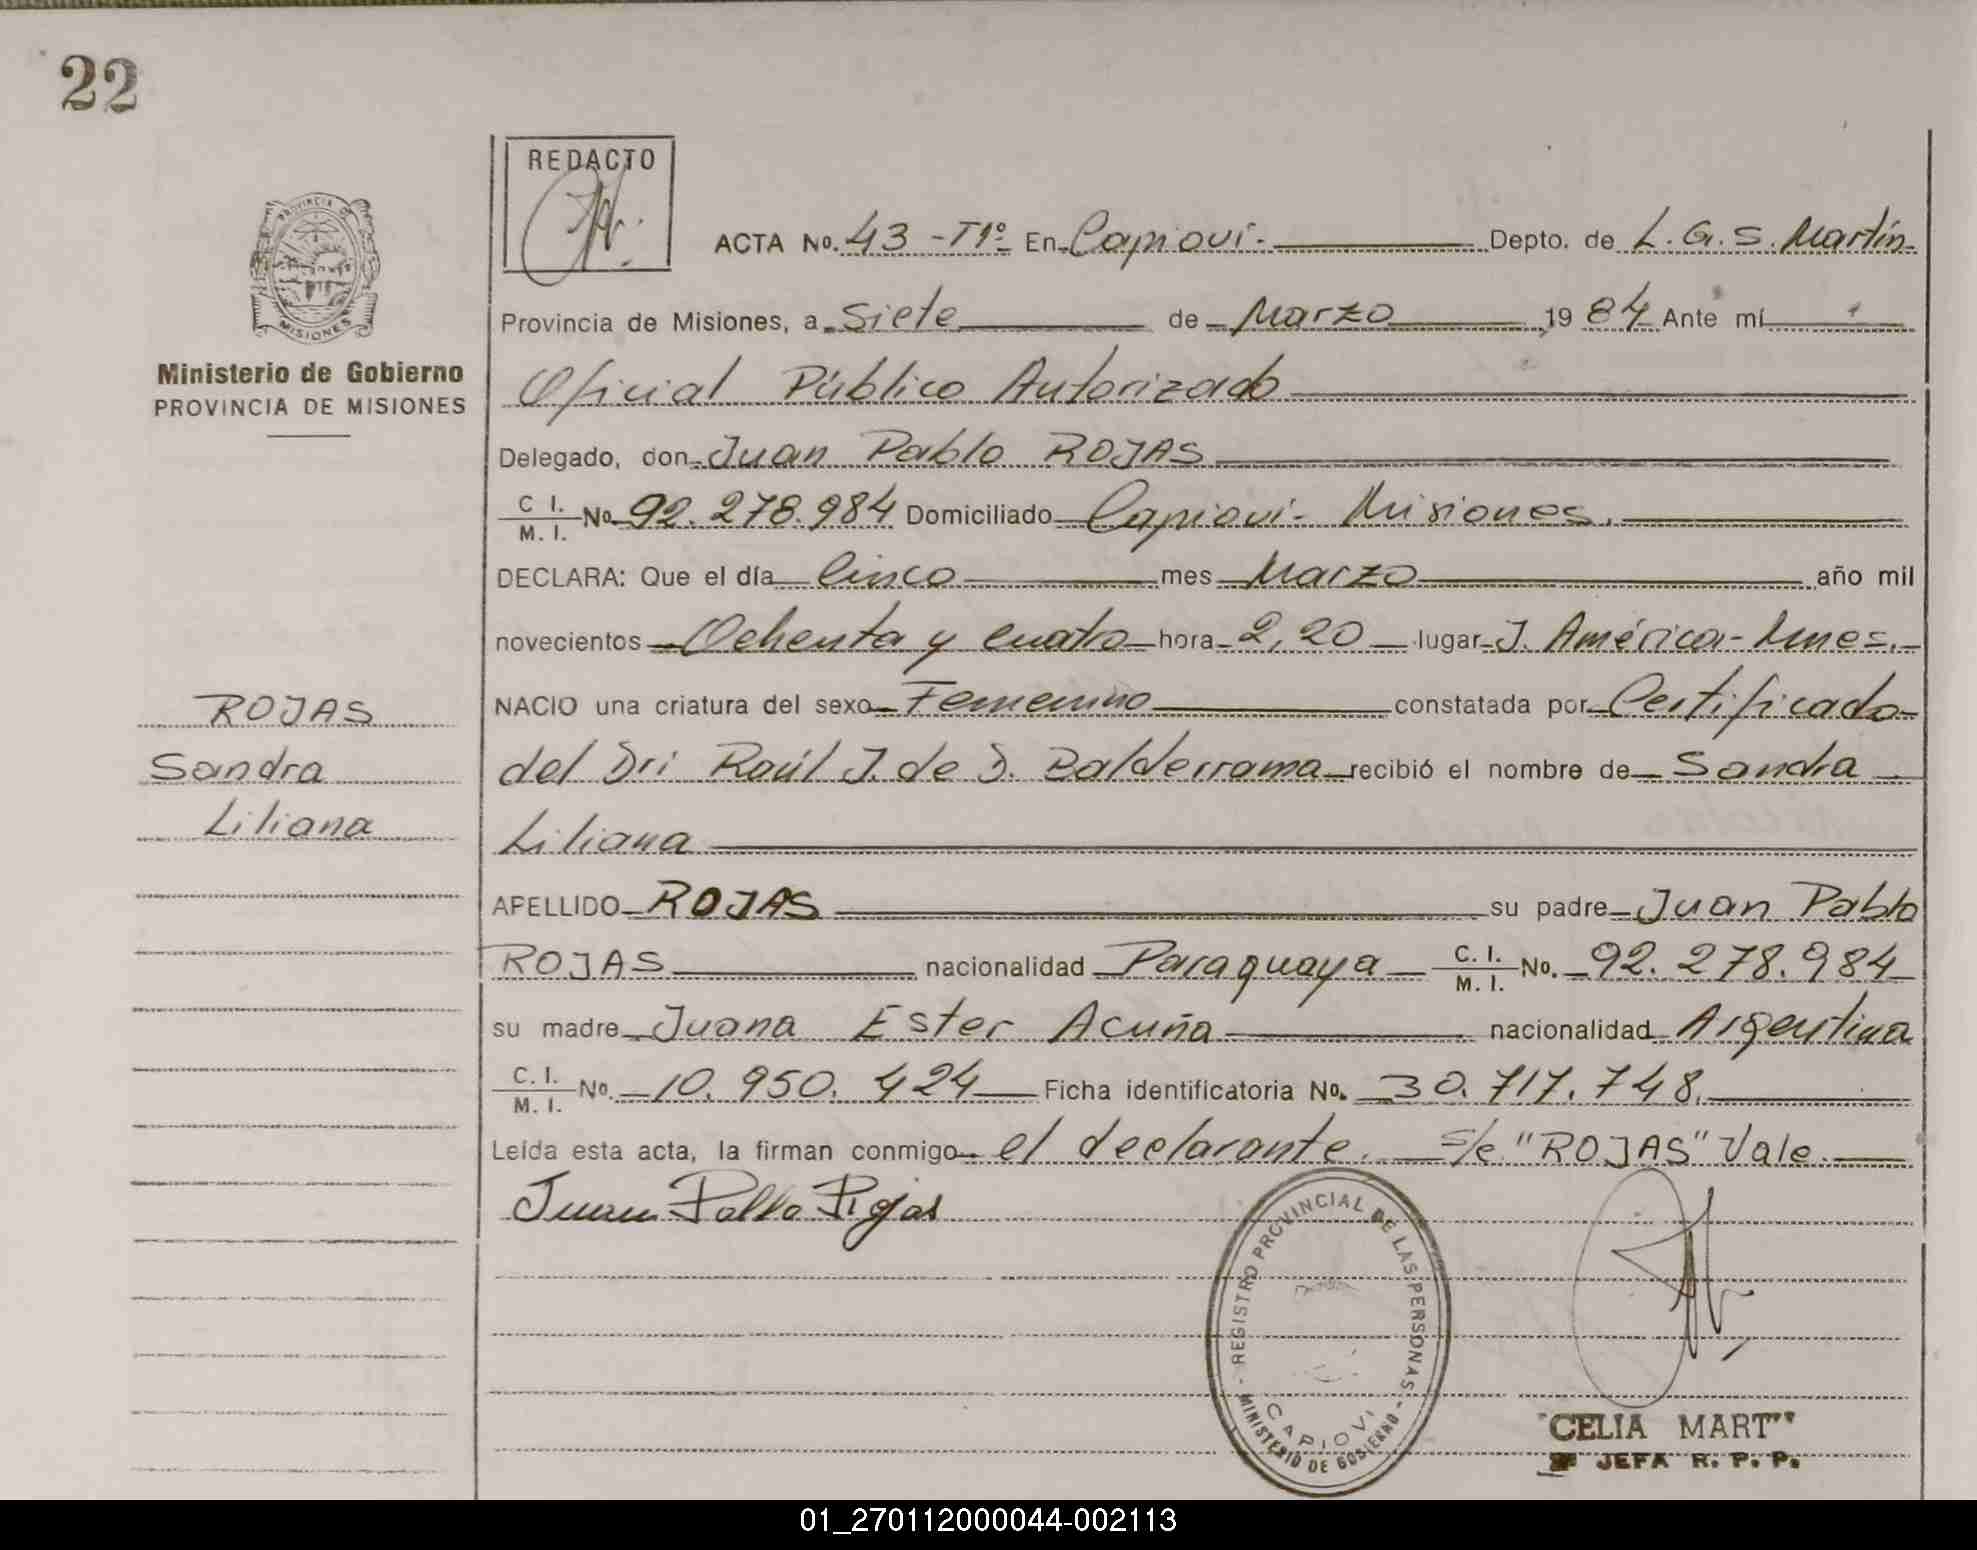 22
REDACTO
ACTA No. 43 - T1º En Capioví.- Depto. de L. G. S. Martín.
Provincia de Misiones, a Siete de Marzo 1984 Ante mí
Oficial Público Autorizado
Delegado, don Juan Pablo ROJAS
C. I. / M. I. No 92.278.984 Domiciliado Capioví - Misiones.
DECLARA: Que el día Cinco mes Marzo año mil
novecientos Ochenta y cuatro hora 2,20 lugar J. América - Mnes.
NACIO una criatura del sexo Femenino constatada por Certificado
del Dr: Raúl J. de D. Balderrama recibió el nombre de Sandra
Liliana
APELLIDO ROJAS su padre Juan Pablo
ROJAS nacionalidad Paraguaya C. I. / M. I. No. 92.278.984
su madre Juana Ester Acuña nacionalidad Argentina
C. I. / M. I. No. 10.950.424 Ficha identificatoria No. 30.717.748.
Leída esta acta, la firman conmigo el declarante. S/e "ROJAS" Vale.
Juan Pablo Rojas
PROVINCIA DE MISIONES
Ministerio de Gobierno
PROVINCIA DE MISIONES
ROJAS
Sandra
Liliana
REGISTRO PROVINCIAL DE LAS PERSONAS
CAPIOVI
MINISTERIO DE GOBIERNO
CELIA
JEFA R. P. P.
01_270112000044-002113